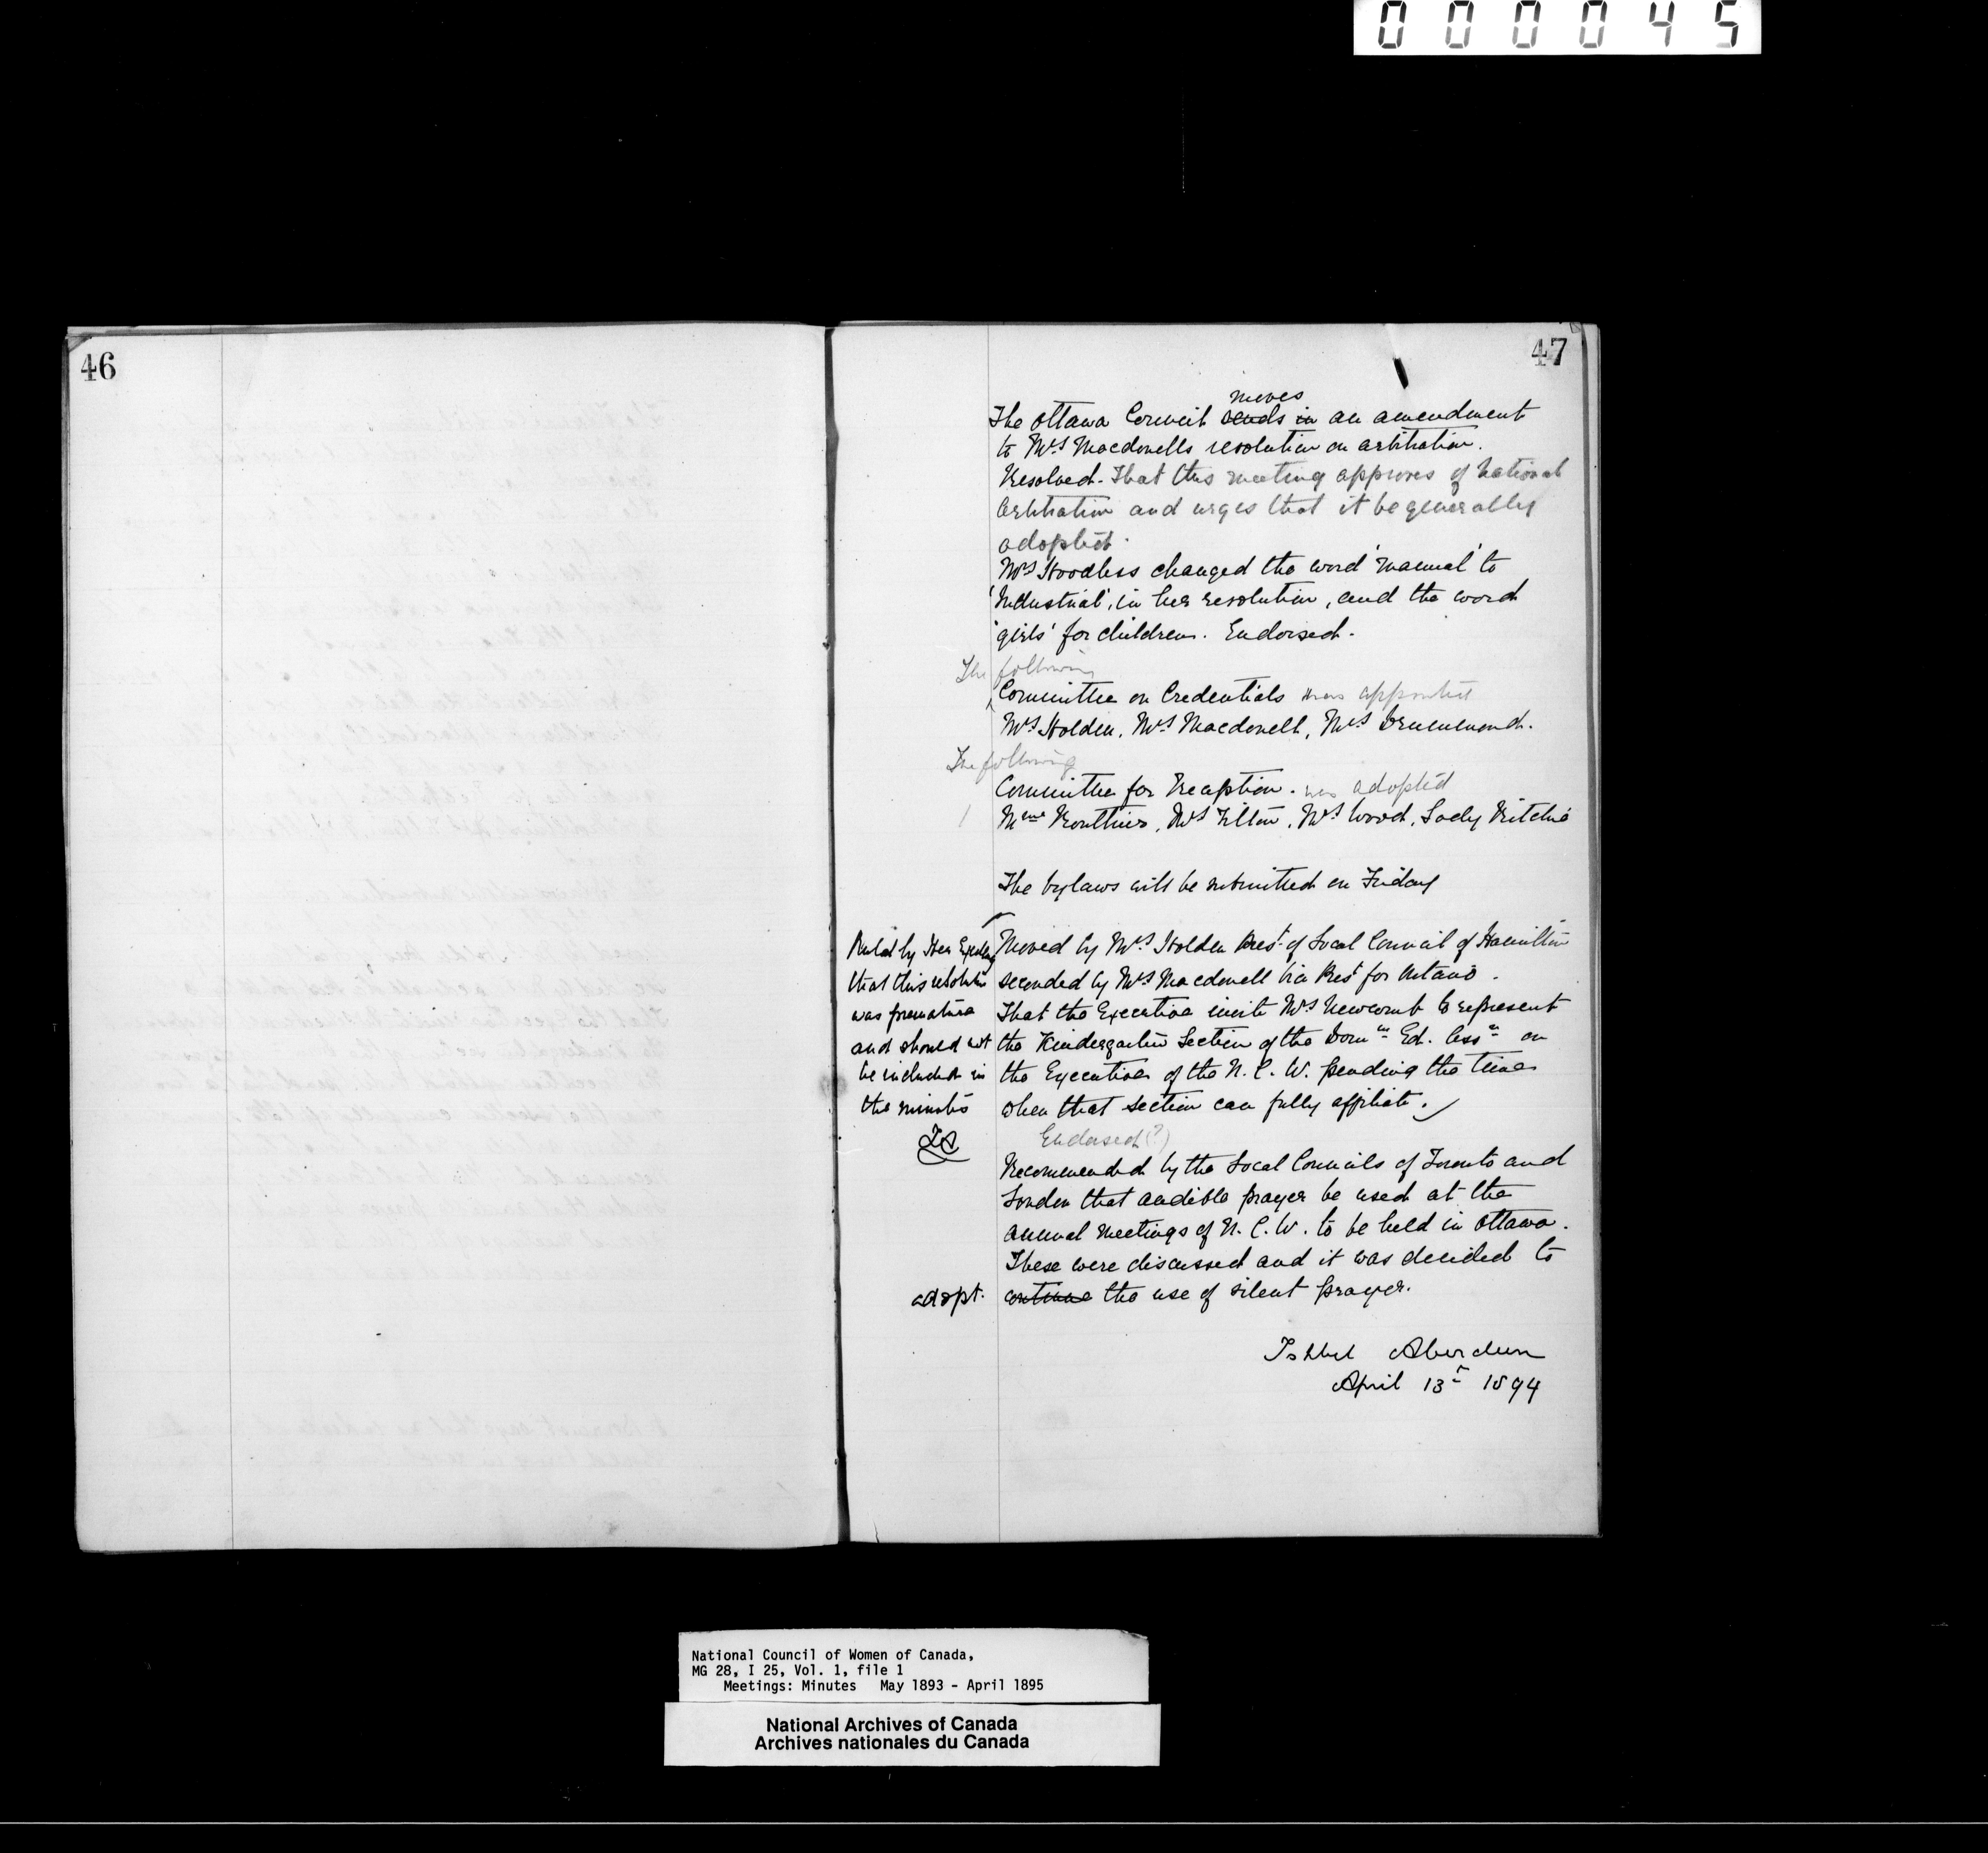 000045
46
47
moves
The Ottawa Council sends in an amendment
to Mrs Macdonells resolution on arbitration.
Resolved. That this meeting approves of national
Arbitration and urges that it be generally
adopted.
Mrs Hoodless changed the word 'manual' to
'Industrial', in her resolution, and the word
'girls' for children. Endorsed.
The following
Committee on Credentials was appointed
Mrs Holden, Mrs Macdonell, Mrs Drummond.
The following
Committee for Reception. was adopted
Mme Routhier, Mrs Tilton, Mrs Wood, Lady Ritchie
The bylaws will be submitted on Friday
Ruled by Her Excellency
that this resolution
was premature
and should not
be included in
the minutes
IA
Moved by Mrs Holden Prest of Local Council of Hamilton
seconded by Mrs Macdonell Vice Prest for Ontario.
That the Executive invite Mrs Newcomb to represent
the Kindergarten Section of the Domn Ed. Assn on
the Executive of the N. C. W. pending the time
when that section can fully affiliate.
Endorsed (?)
Recommended by the Local Councils of Toronto and
London that audible prayer be used at the
annual meetings of N. C. W. to be held in Ottawa.
These were discussed and it was decided to
adopt. continue the use of silent prayer.
Ishbel Aberdeen
April 13th 1894
National Council of Women of Canada,
MG 28, I 25, Vol. 1, file 1
Meetings: Minutes May 1893 - April 1895
National Archives of Canada
Archives nationales du Canada